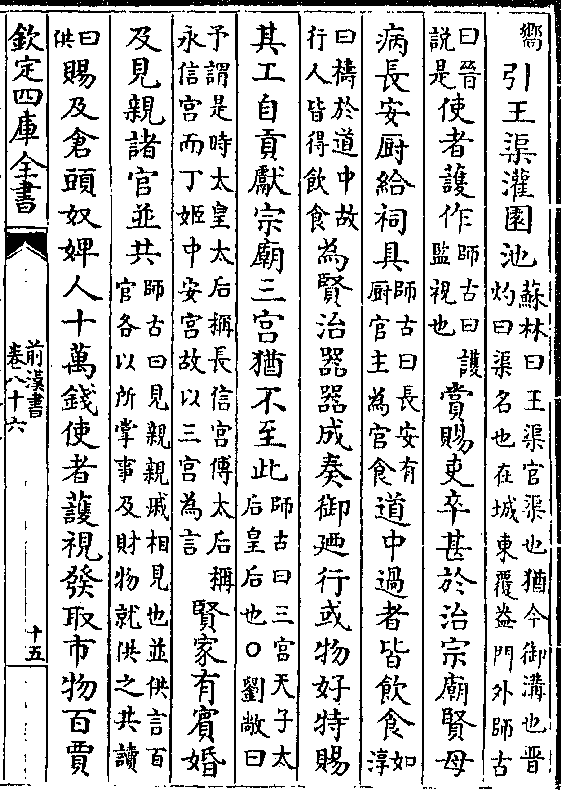 嚮引王渠灌園池蘇林曰王渠官渠也猶今御溝也晉灼曰渠名也在城東覆盎門外師古
曰晉說是使者護作師古曰護監視也賞賜吏卒甚於治宗廟賢母
病長安厨給祠具師古曰長安有厨官主為官食道中過者皆飲食如淳
曰禱於道中故行人皆得飲食為賢治器器成奏御廼行或物好特賜
其工自貢獻宗廟三宫猶不至此師古曰三宫天子太后皇后也○劉敞曰
予謂是時太皇太后稱長信宫傅太后稱永信宫而丁姬中安宫故以三宫為言賢家有賓婚
及見親諸官並共師古曰見親親戚相見也並供言百官各以所掌事及財物就供之共讀
曰供賜及倉頭奴婢人十萬錢使者護視發取市物百賈
欽定四庫全書
前漢書
卷八十六
十五